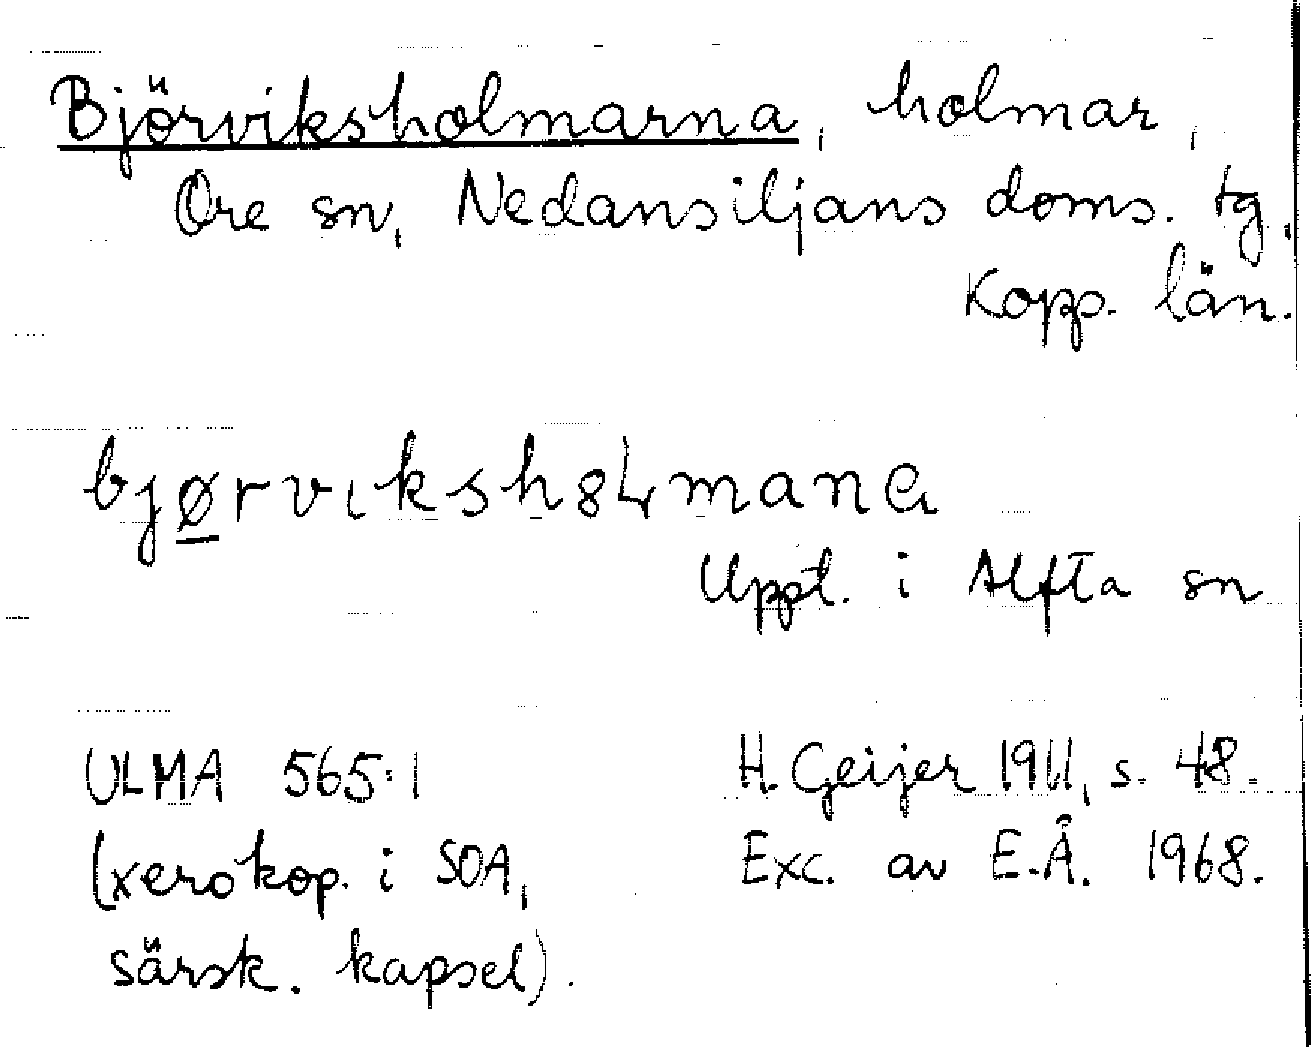 Björviksholmarna, holmar,
Ore sn, Nedansiljans doms. tg,
Kopp. län.
bjørvıksh8Lmanɑ
Uppt. i Alfta sn
ULMA 565:1 H. Geijer 1911, s. 48.
(xerokop. i SOA, Exc. av E.Å. 1968.
särsk. kapsel).